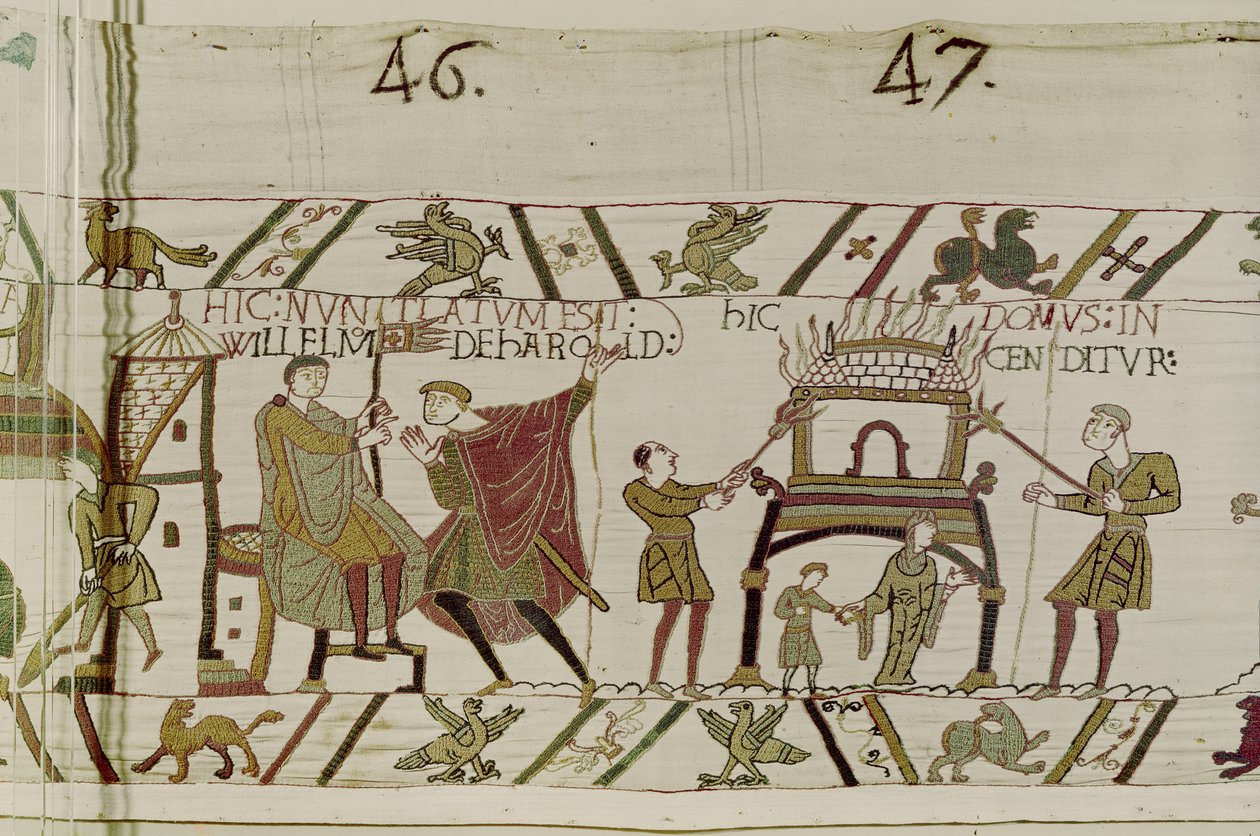 46.
47.
HIC: NVNTIATVM EST:
WILLELMO DE hAROLD:
hIC DOMVS: IN
CENDITVR: